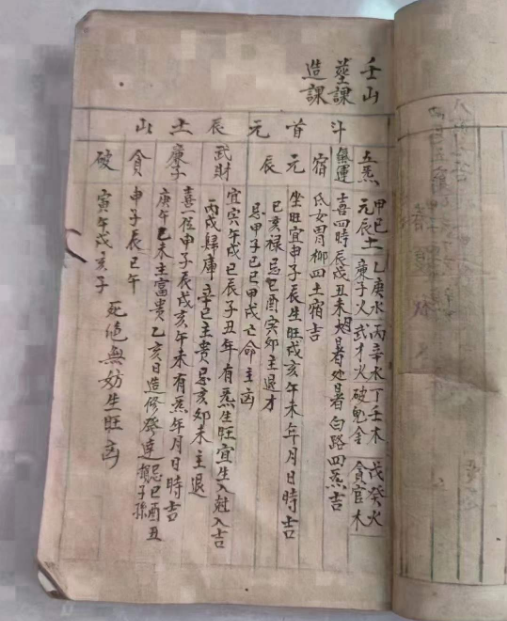 壬山
塋課
造課
斗首元辰土山
五炁 甲己土 乙庚水 丙辛水 丁壬木 戊癸火
元辰土 廉子火 武才火 破鬼金 貪官木
氣運 喜四時辰戌丑未 暑处暑白路四炁吉
宿 氐女胃柳四土宿吉
元 坐旺宜申子辰生旺戌亥午未年月日時吉
辰 巳亥禄忌乙酉寅卯主退才
忌甲子己巳甲戌亡命主凶
武財 宜寅午戌巳辰子丑年有炁生旺宜生入尅入吉
丙戌歸庫辛巳主贵忌亥卯未主退
廉子 喜一位申子辰戌亥午未有炁年月日時吉
庚午乙未主富贵乙亥日造修發達忌巳酉丑子孫
貪 申子辰巳午
破 寅午戌亥子
死絕無妨生旺凶